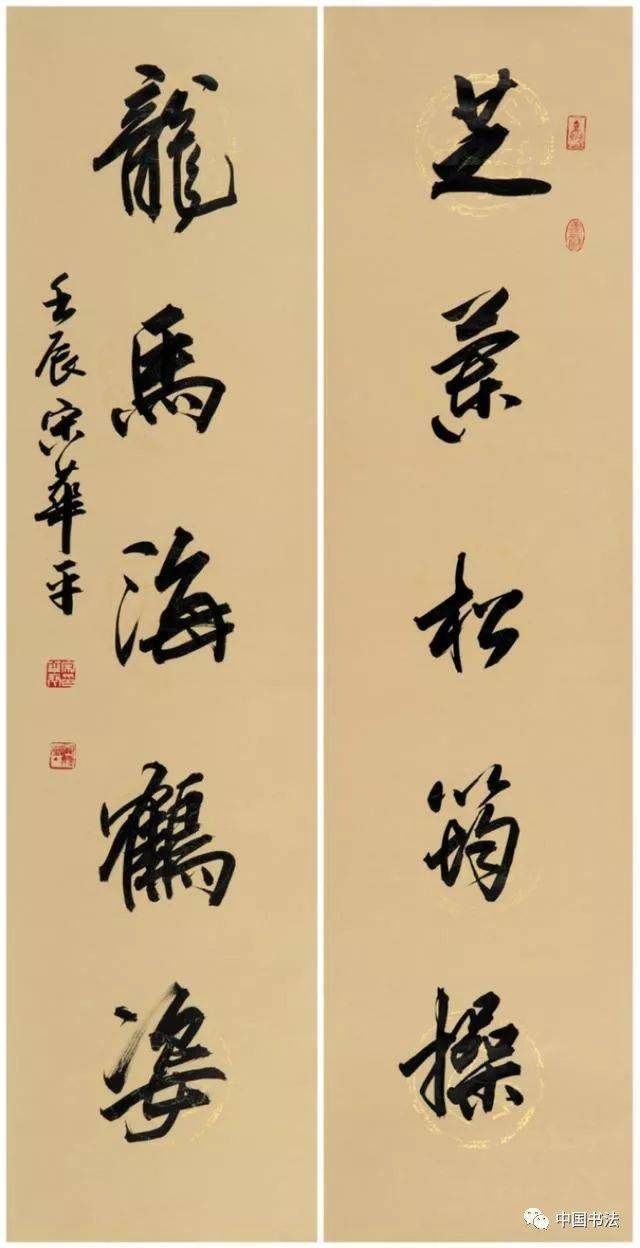 芝蘭松筠操
龍馬海鶴姿
壬辰宋華平
中国书法